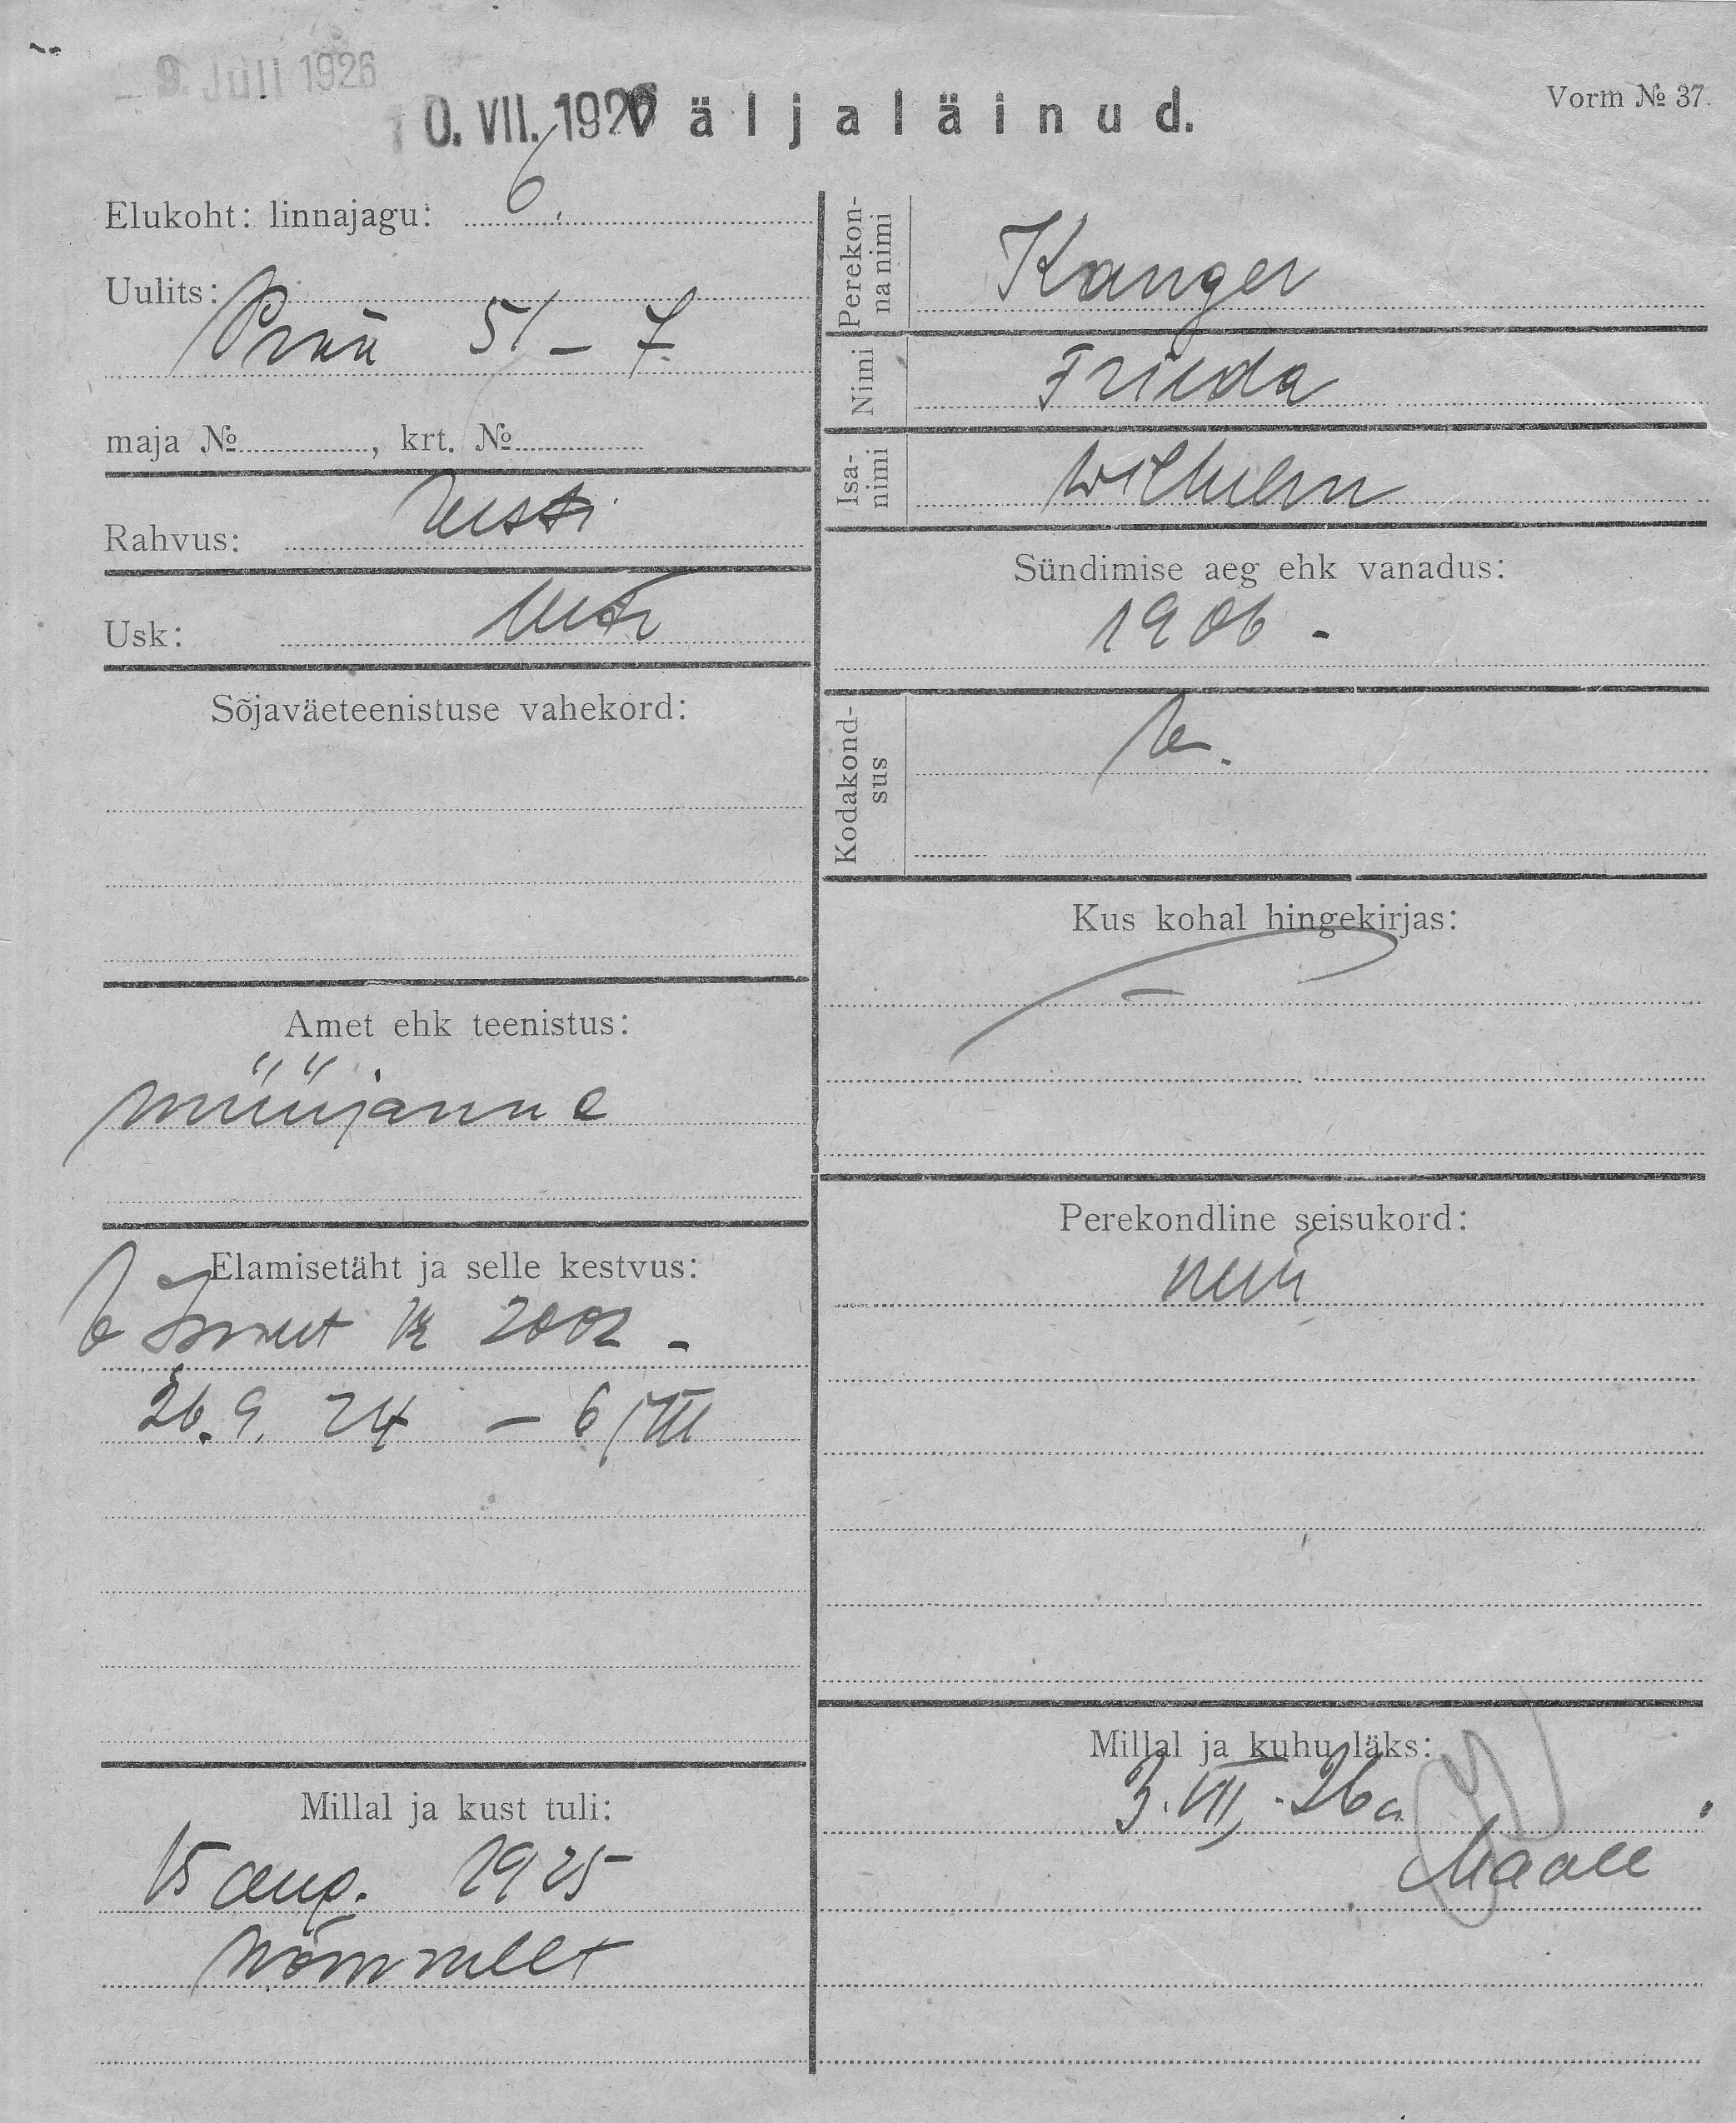 9. Juli 1926
10. VII. 1926
Väljaläinud.
Vorm № 37.
Elukoht: linnajagu: 6.
Uulits:
51 – 7.
maja № , krt. №
Rahvus: Eesti
Usk:
Sõjaväeteenistuse vahekord:
Amet ehk teenistus:
müüjanna
Elamisetäht ja selle kestvus:
№ 2002 –
26.9. 24 – 6/VIII
Millal ja kust tuli:
15 aug. 1925
Nõmmelt
Perekonna nimi
Kanger
Nimi
Frieda
Isa-nimi
Wilhelm
Sündimise aeg ehk vanadus:
1906 -
Kodakond-sus
Kus kohal hingekirjas:
–
Perekondline seisukord:
neiu
Millal ja kuhu läks:
3. VII. 26 a
Maale